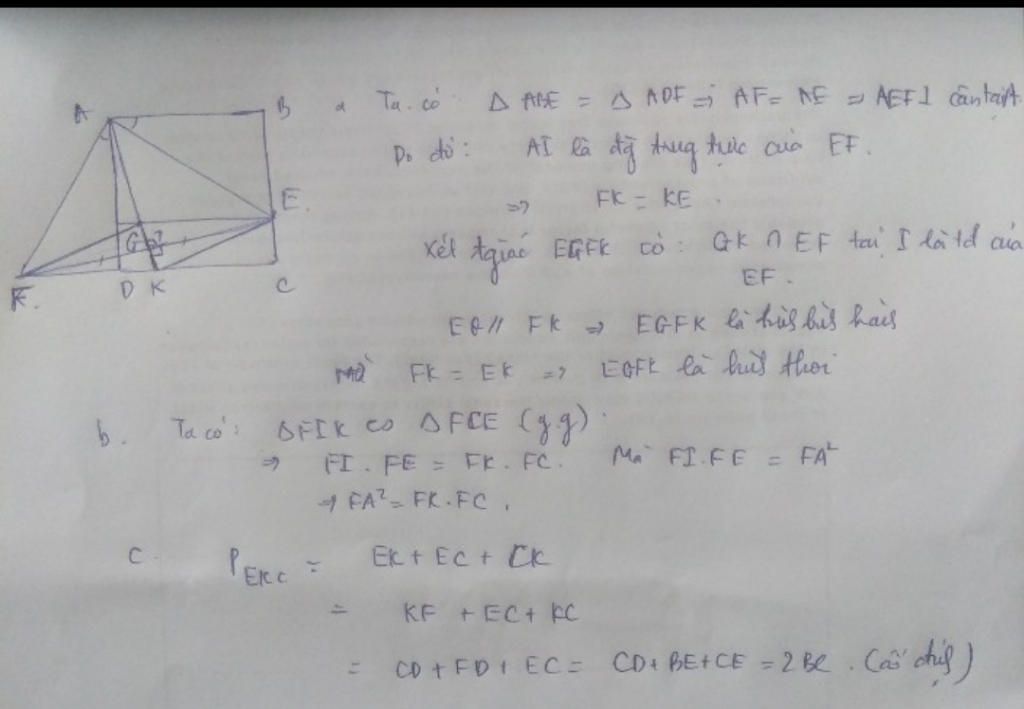 A B
E
G I
F D K C
a Ta có: Δ ABE = Δ ADF => AF = AE => AEF cân tại A.
Do đó: AI là đg trung trực của EF.
=> FK = KE.
Xét tgiác EGFK có: GK ∩ EF tại I là tđ của
EF.
EG // FK => EGFK là hình bình hành
Mà FK = EK => EGFK là hình thoi
b. Ta có: ΔFIK ∽ ΔFCE (g.g).
=> FI . FE = FK . FC. Mà FI . FE = FA²
=> FA² = FK . FC.
c. P EKC = EK + EC + CK
= KF + EC + KC
= CD + FD + EC = CD + BE + CE = 2BC.